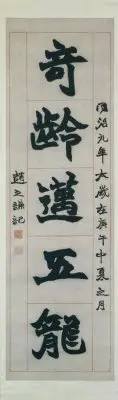 同治九年大歲在庚午中夏之月
奇齡邁五龍
趙之謙記